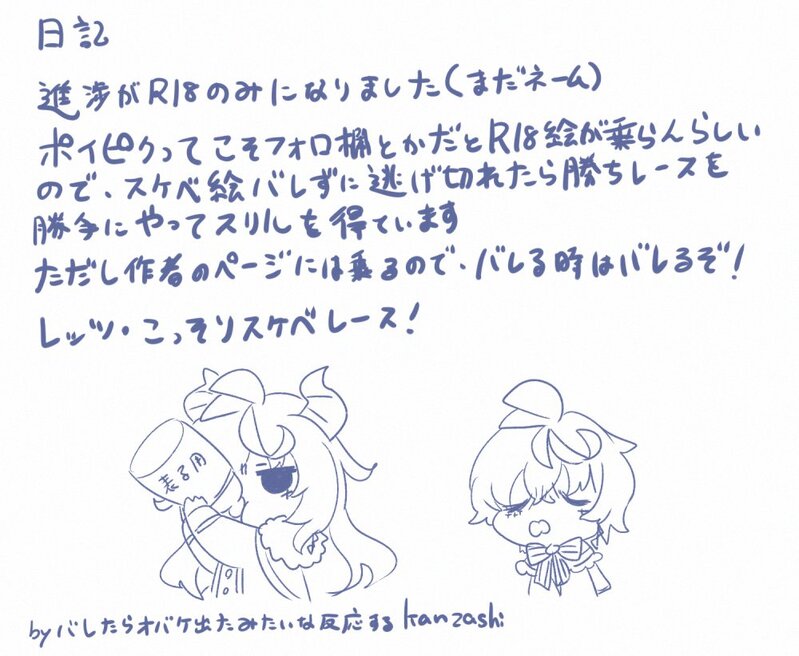 日記
進渉がR18のみになりました(まだネーム)
ポイピクってこそフォロ欄とかだとR18絵が乗らんらしい
ので、スケベ絵バレずに逃げ切れたら勝ちレースを
勝手にやってスリルを得ています
ただし作者のページには乗るので、バレる時はバレるぞ!
レッツ・こっそりスケベレース!
by バレたらオバケ出たみたいな反応するkanzashi